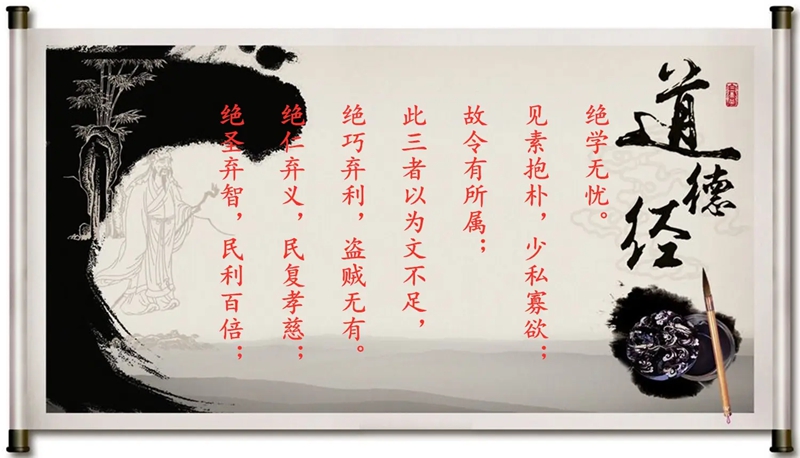 道德经
绝圣弃智，民利百倍；
绝仁弃义，民复孝慈；
绝巧弃利，盗贼无有。
此三者以为文不足，
故令有所属；
见素抱朴，少私寡欲；
绝学无忧。